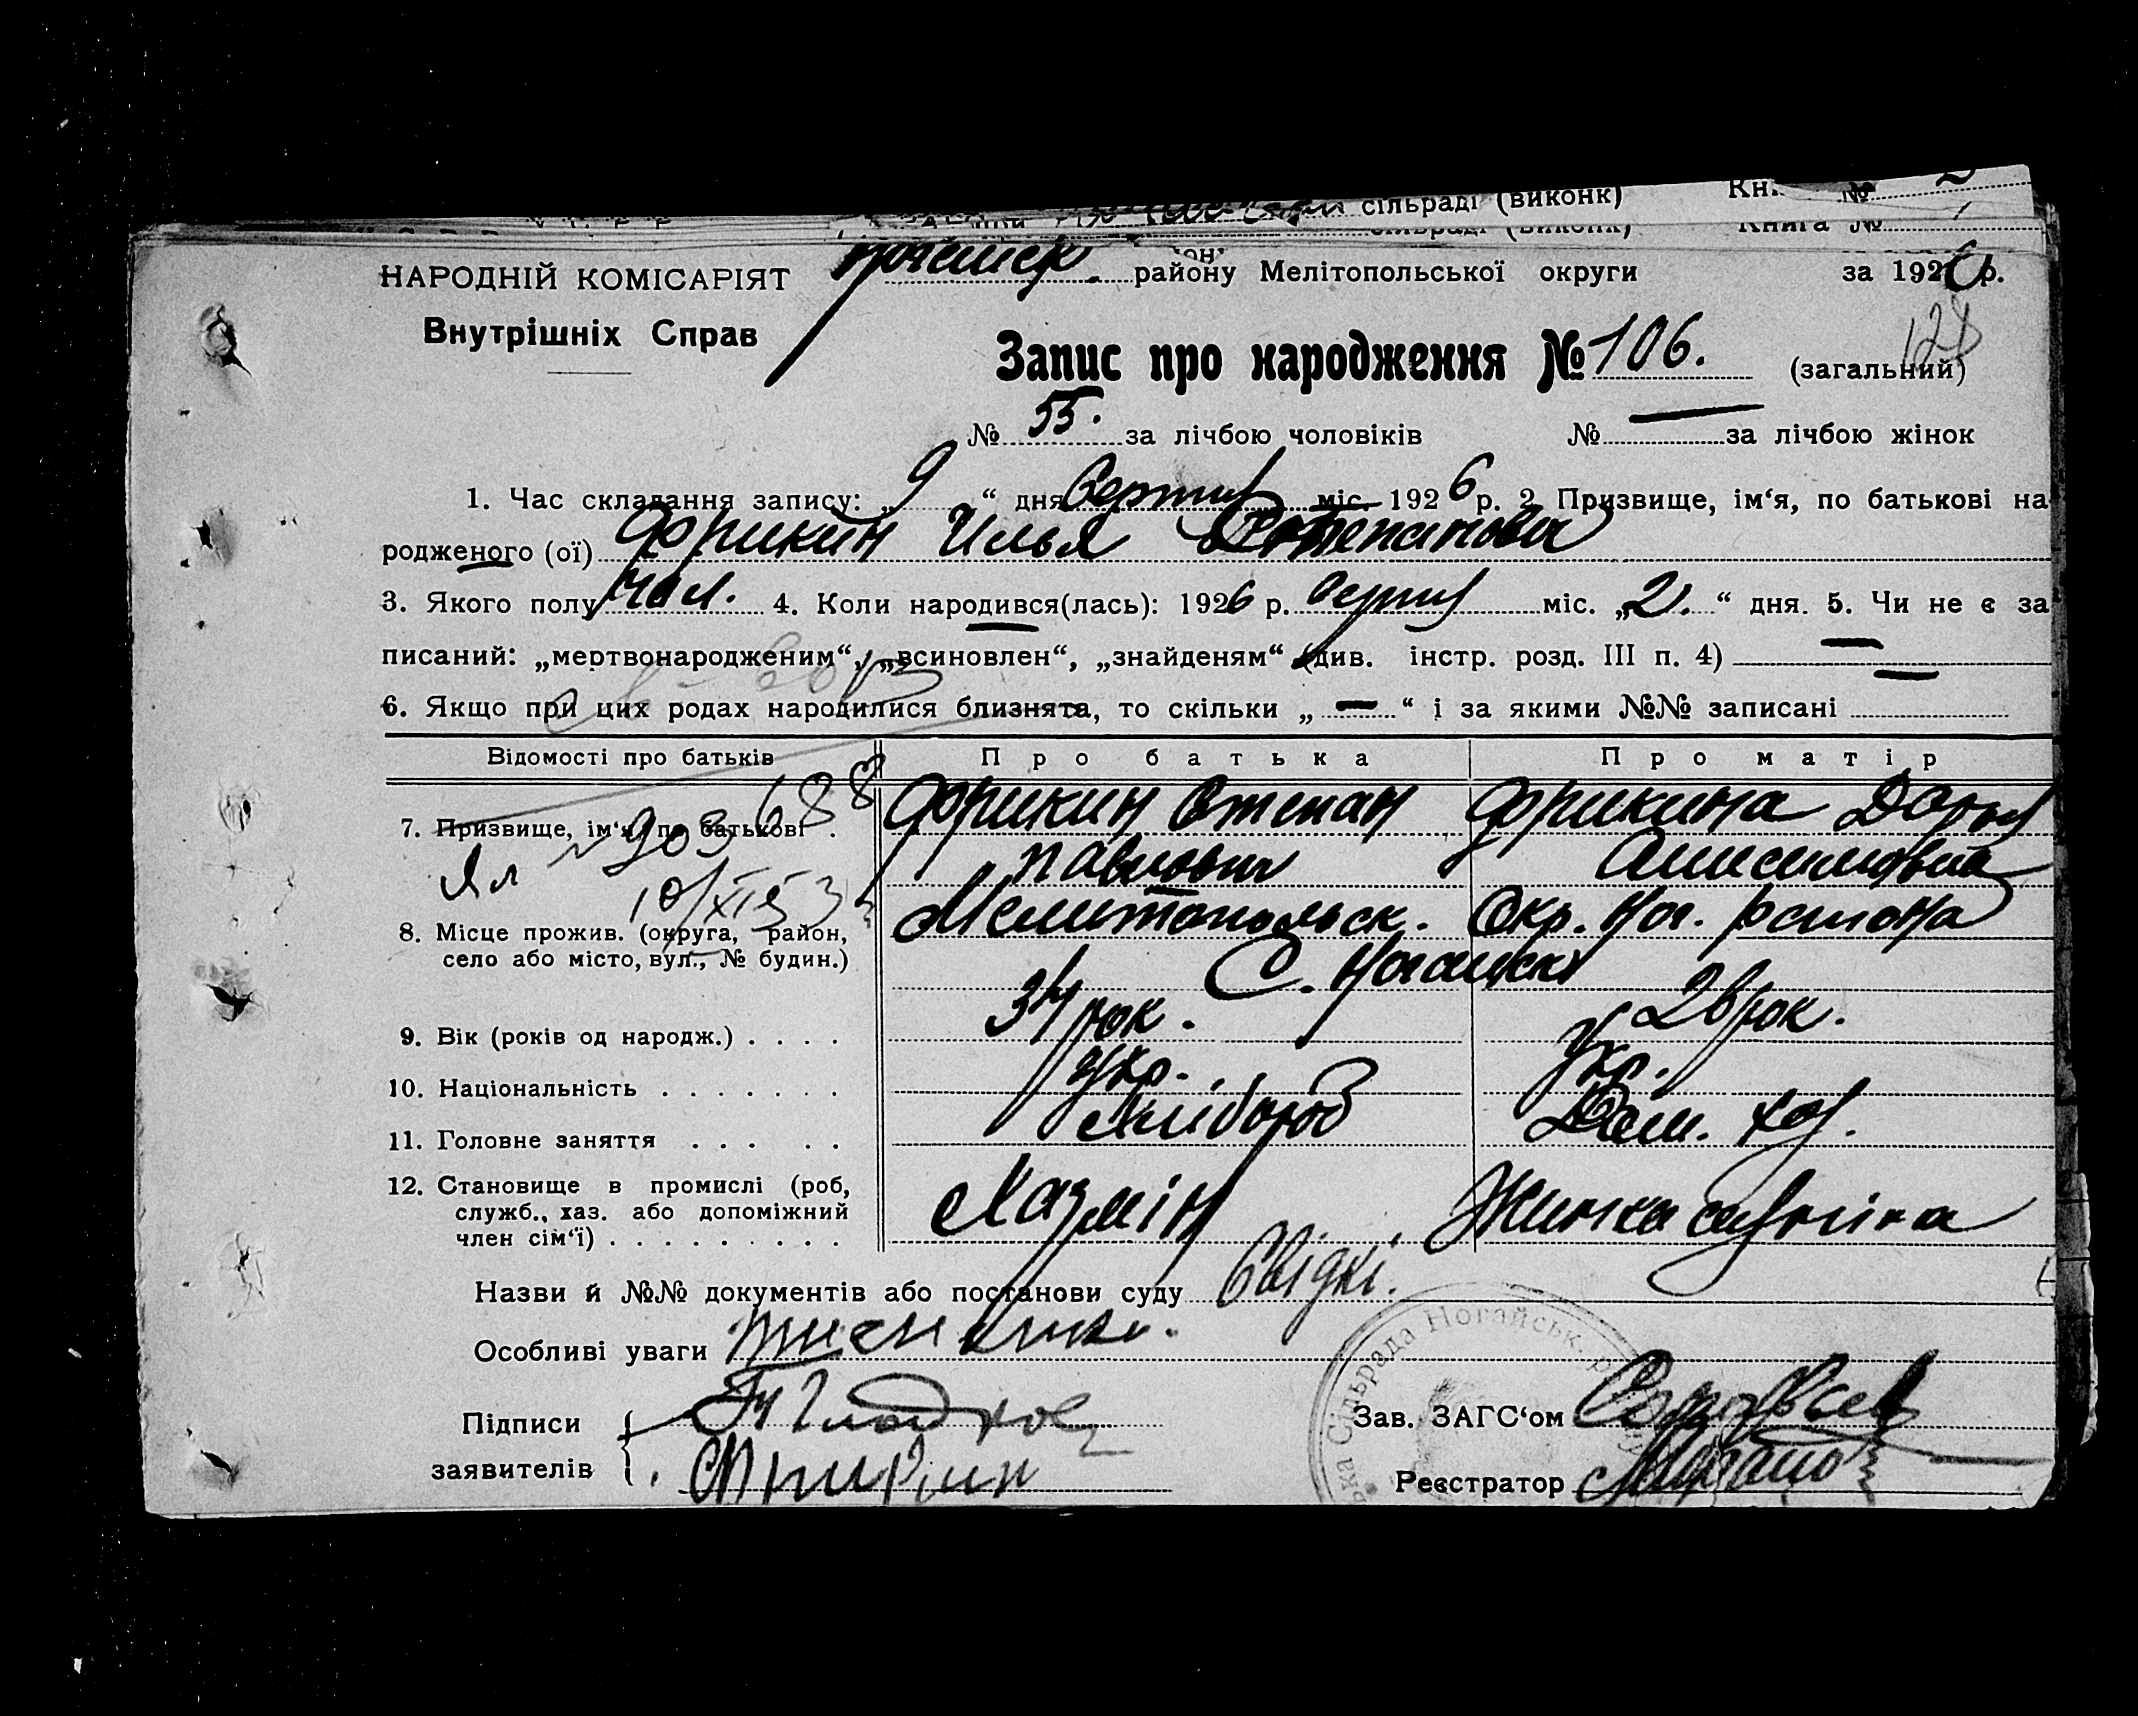 сільраді (виконк) Кн. №
сільраді (виконк) Книга №
НАРОДНІЙ КОМІСАРІЯТ району Мелітопольської округи за 1926 р.
Внутрішніх Справ
Запис про народження № 106. (загальний)
№ 55. за лічбою чоловіків № — за лічбою жінок
1. Час складання запису: „ 9 “ дня Серпня міс. 1926 р. 2. Призвище, ім‘я, по батькові на
родженого (ої) Фрикин Илья Степанович
3. Якого полу чол. 4. Коли народився(лась): 1926 р. Серпня міс. „ 2. “ дня. 5. Чи не є за
писаний: „мертвонародженим“, „всиновлен“, „знайденям“ (див. інстр. розд. III п. 4) —
6. Якщо при цих родах народилися близнята, то скільки „ — “ і за якими №№ записані —
Відомості про батьків Про батька Про матір
7. Призвище, ім‘я, по батькові . Фрикин Степан Фрикина Дарья
Павлович Анисимовна
8. Місце прожив. (округа, район, Мелитопольск. Окр. Ног. района
село або місто, вул., № будин.) С. Ногайск
9. Вік (років од народж.) . . . . 34 рок. 28 рок.
10. Національність . . . . . . . Укр. Укр.
11. Головне заняття . . . . . Хлібороб Дом. хоз.
12. Становище в промислі (роб, Хазяїн Жинка хазяїна
служб., хаз. або допоміжний
член сім‘ї) . . . . . . . . .
Назви й №№ документів або постанови суду Свідкі.
Особливі уваги
Підписи Гладков
Зав. ЗАГС‘ом Соловьев
заявителів Фрикин
Реєстратор
Сільрада Ногайськ. р